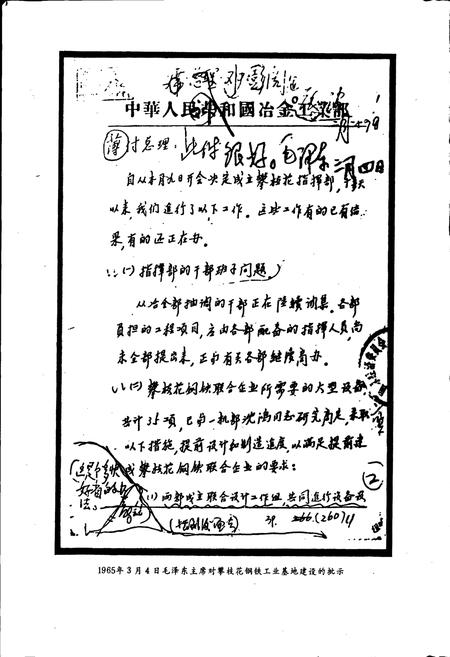 中華人民共和國冶金工業部
薄付总理：
此件很好。毛泽东
三月四日
自从本月九日开会决定成立攀枝花指挥部，
以来，我们进行了以下工作。这些工作有的已有结
果，有的还正在办。
(一)指挥部的干部班子问题。
从冶金部抽调的干部正在陆续调集。各部
负担的工程项目，应由各部配备的指挥人员，尚
未全部提出来，正和有关各部继续商办。
(二)攀枝花钢铁联合企业所需要的大型设备
共计35项，已和一机部沈鸿同志研究商定，采取
以下措施，提前设计和制造进度，以满足提前建
成攀枝花钢铁联合企业的要求：
(1)两部成立联合设计工作组，共同进行设备设
这是多快
好省的
法。
1965年3月4日毛泽东主席对攀枝花钢铁工业基地建设的批示